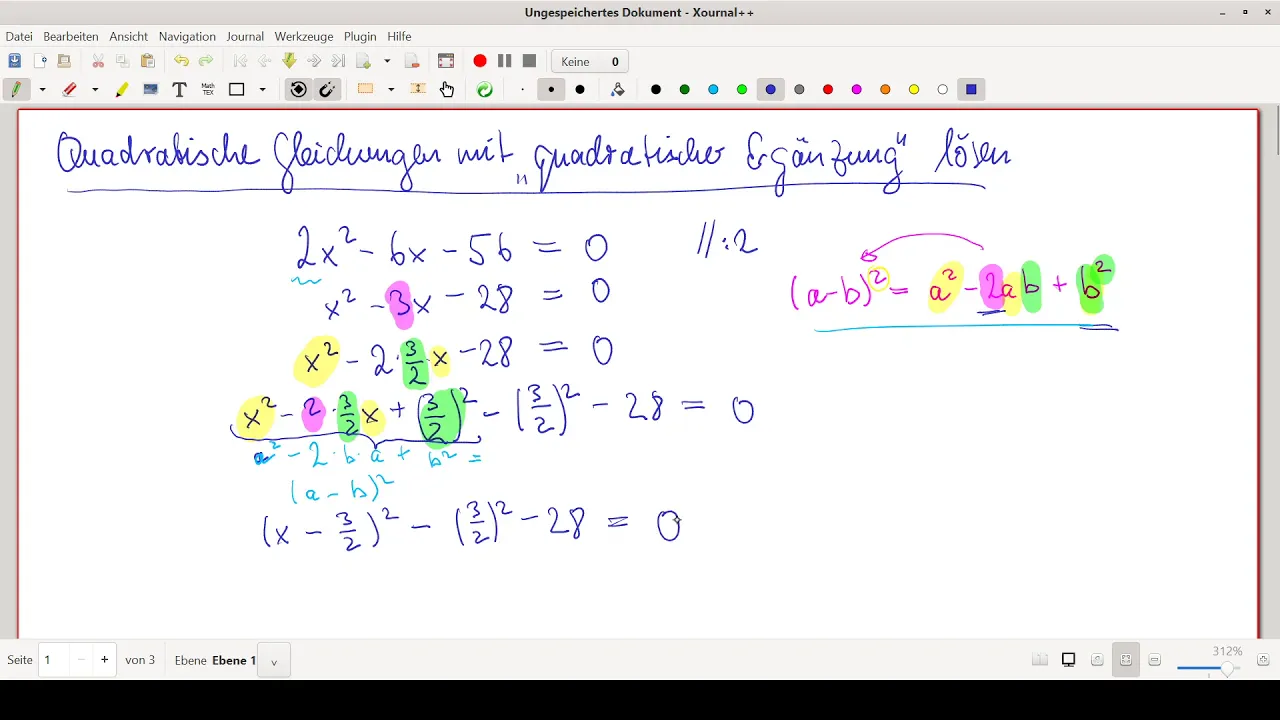 Ungespeichertes Dokument - Xournal++
Datei Bearbeiten Ansicht Navigation Journal Werkzeuge Plugin Hilfe
Keine 0
Math TEX
Quadratische Gleichungen mit „quadratischer Ergänzung" lösen
2x² - 6x - 56 = 0 //:2
x² - 3x - 28 = 0
(a-b)² = a² - 2ab + b²
x² - 2·3/2·x - 28 = 0
x² - 2·3/2x + (3/2)² - (3/2)² - 28 = 0
a² - 2·b·a + b² =
(a-b)²
(x - 3/2)² - (3/2)² - 28 = 0
Seite 1 - + von 3 Ebene Ebene 1 v
312%